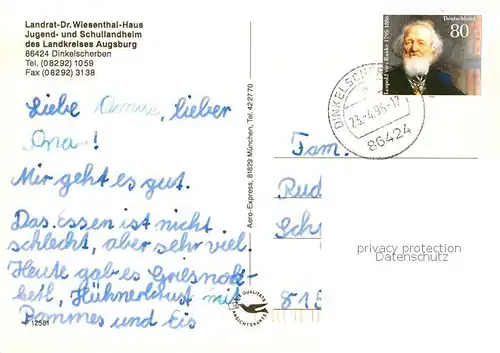 Landrat-Dr. Wiesenthal-Haus
Jugend- und Schullandheim
des Landkreises Augsburg
86424 Dinkelscherben
Tel. (08292) 1059
Fax (08292) 3138
Deutschland
80
Leopold von Ranke 1795-1886
DINKELSCH
23.-4.95-17
86424
Liebe Omi, lieber
Opa!
Mir geht es gut.
Das Essen ist nicht
schlecht, aber sehr viel.
Heute gab es Griesnok-
kerl, Hühnerbrust mit
Pommes und Eis
F 12581
Aero-Express, 81829 München, Tel. 422770
QUALITÄTS
ANSICHTSKARTE
Fam.
Rud
Sch
privacy protection
Datenschutz
815